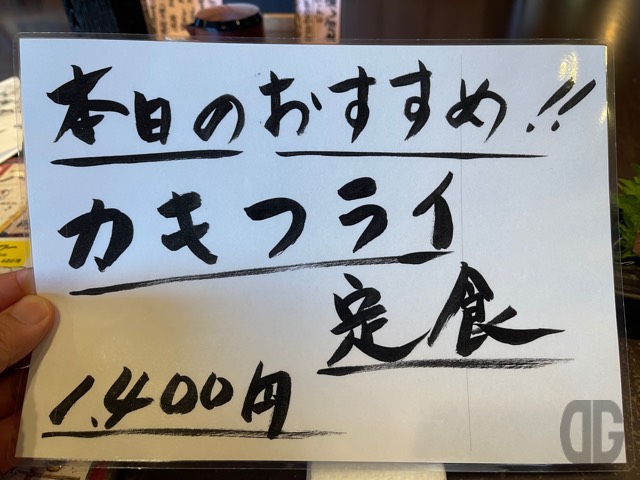 本日のおすすめ!!
カキフライ
定食
1,400円
DG